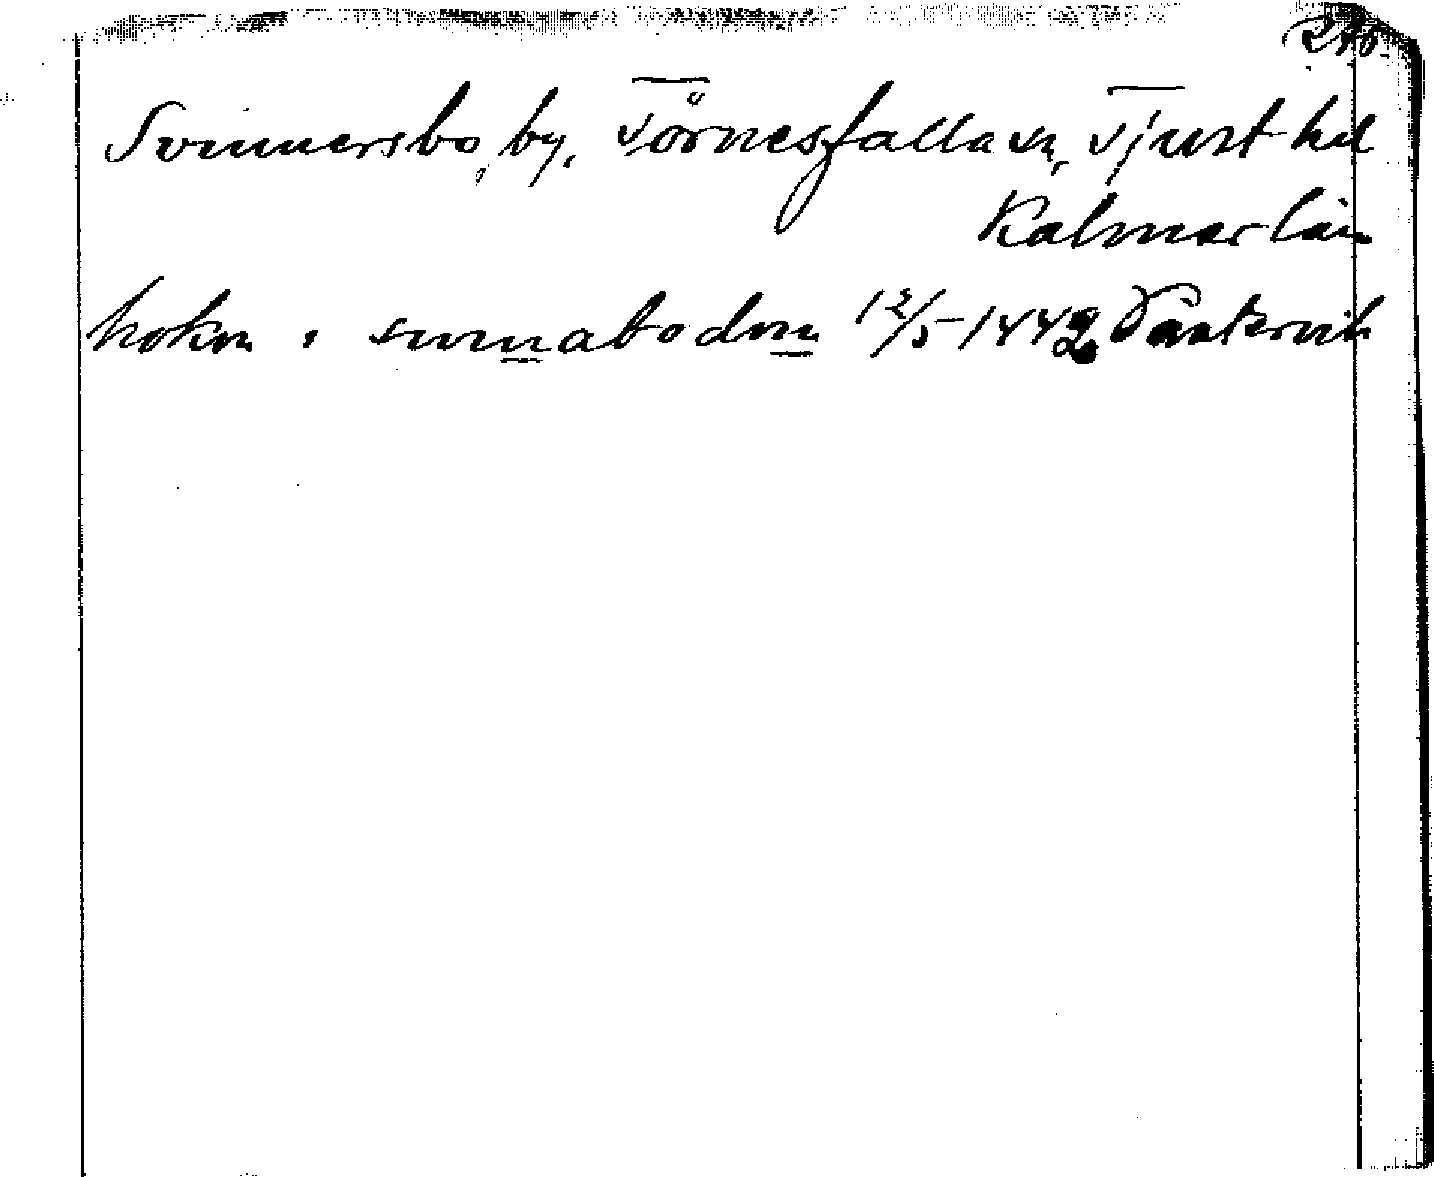 Svinnersbo, by, Törnesfalla sn, Tjust hd
Kalmar län
hokn i swnabodum 12/5 1442 Västervik